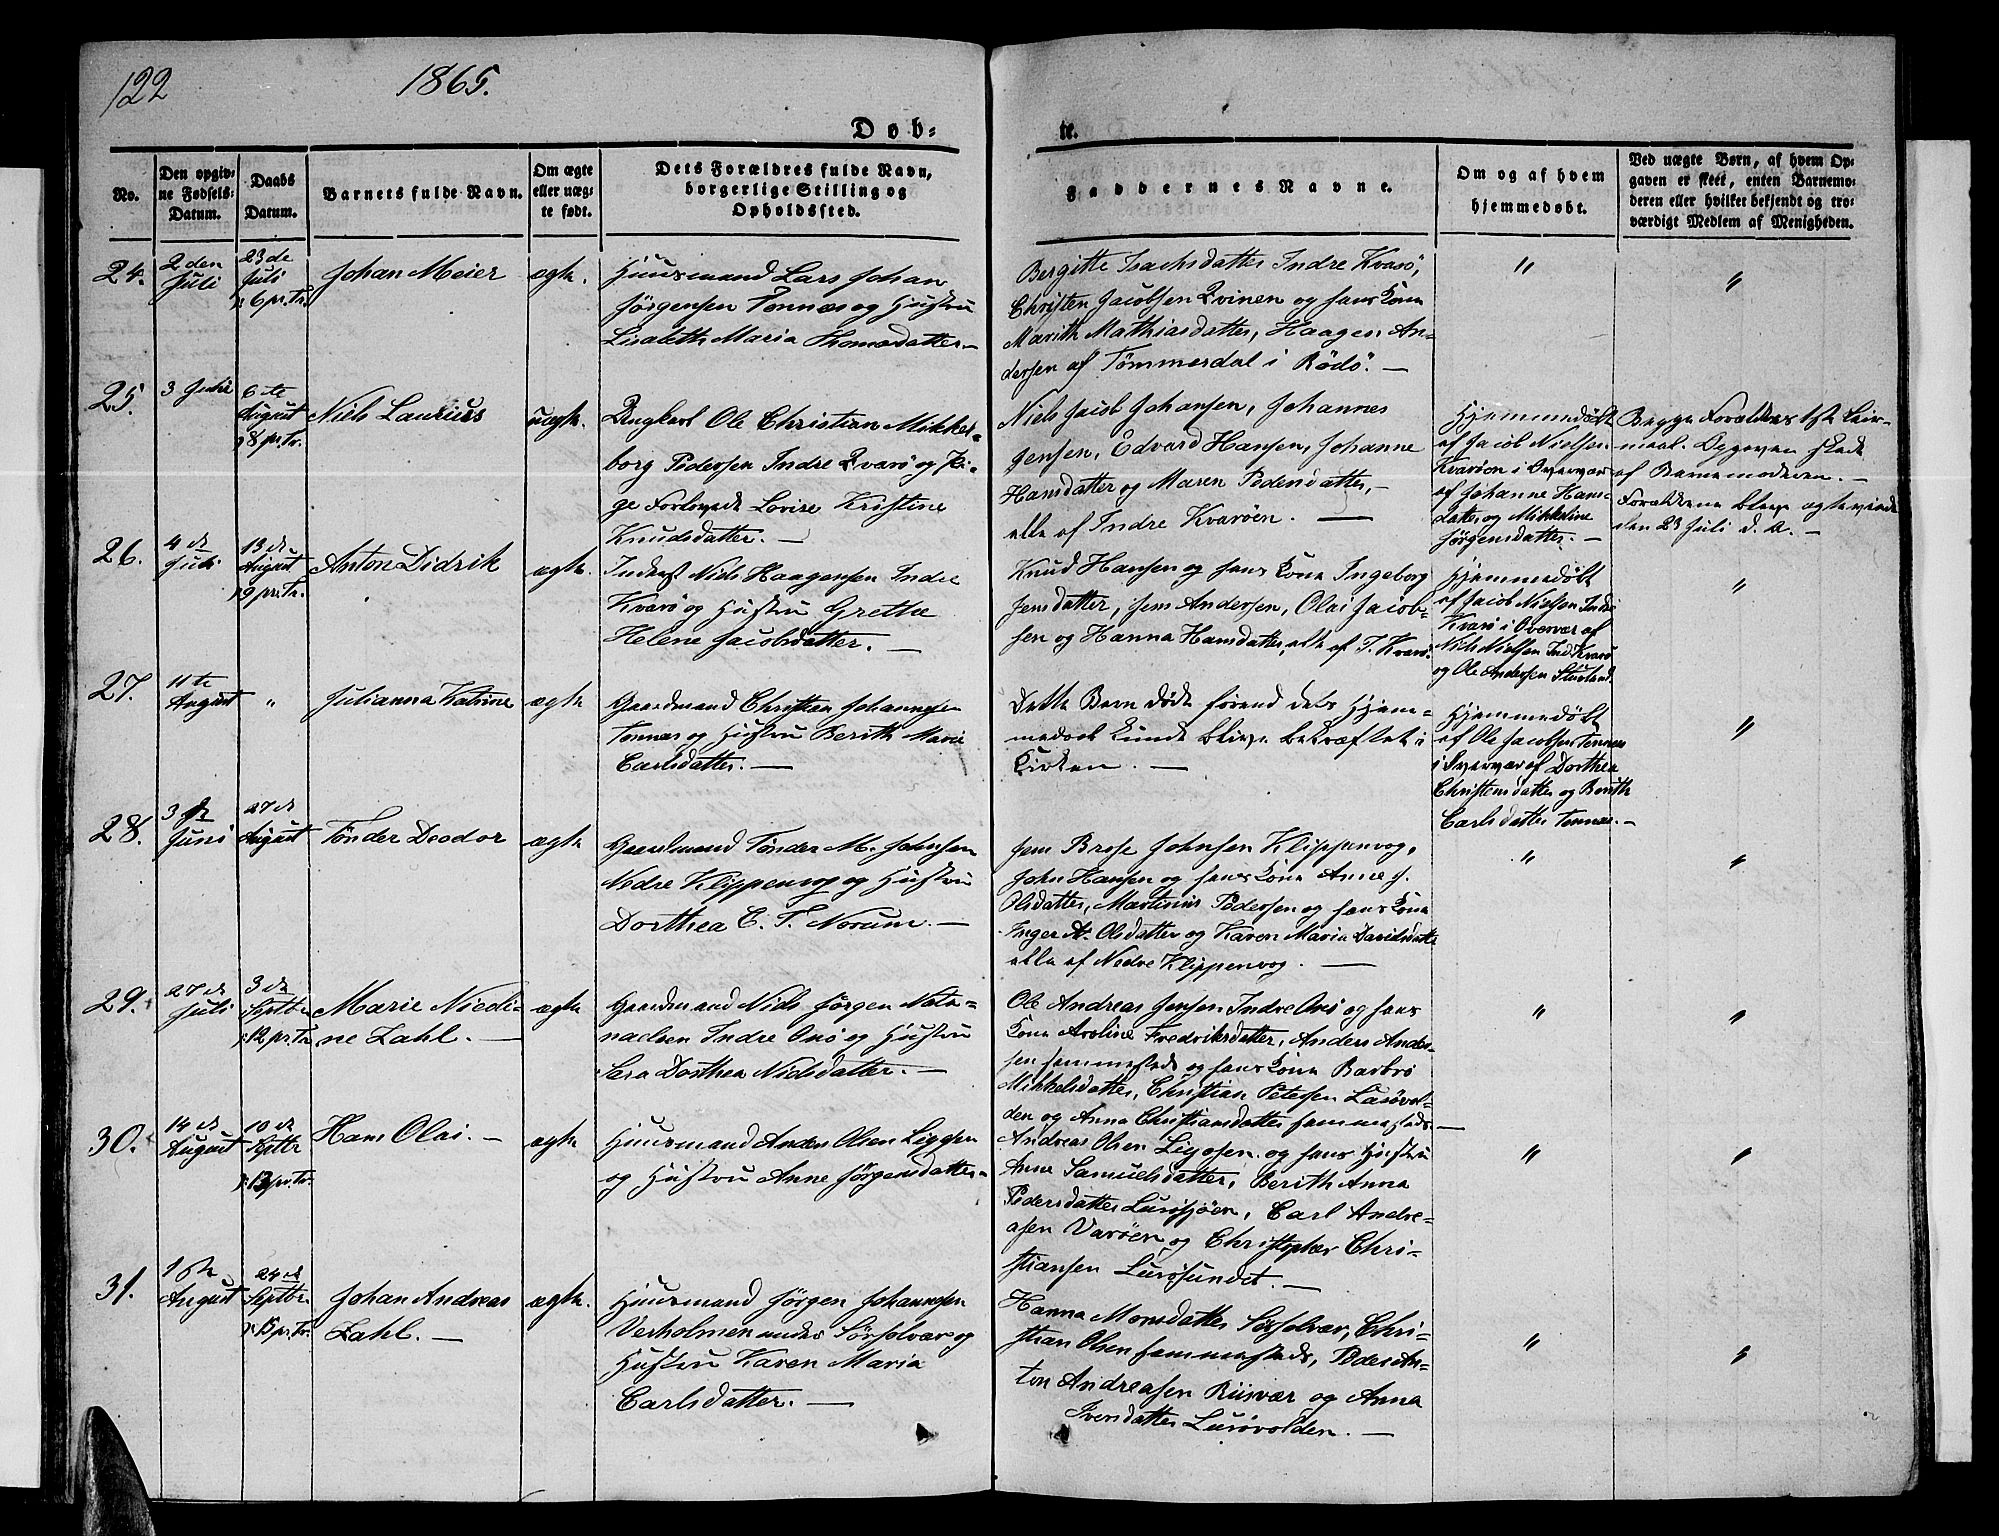 122
1865.
Døb-
te.
No.
Den opgiv-
ne Fødsels-
Datum.
Daabs
Datum.
Barnets fulde Navn.
Om ægte
eller uæg-
te født.
Dets Forældres fulde Navn,
borgerlige Stilling og
Opholdssted.
Faddernes Navne.
Om og af hvem
hjemmedøbt.
Ved uægte Børn, af hvem Op-
gaven er skeet, enten Barnemo-
deren eller hvilket bekjendt og tro-
værdigt Medlem af Menigheden.
24.
2den
Juli
23de
Juli
6 p. Tr.
Johan Meier
ægte.
Huusmand Lars Johan
Jørgensen Tonnæs og Hustru
Lisabeth Maria Thomasdatter. —
Bergitte Isachsdatter Indre Kvarø,
Christen Jacobsen Qvinen og hans Kone
Marith Mathiasdatter, Haagen An-
dersen af Tømmerdal i Rødø.
"
"
25.
3 Juli
6te
August
8 p. Tr.
Niels Laurius
uægte.
Ungkarl Ole Christian Mikkel-
borg Pedersen Indre Qvarø og Pi-
ge Forlovede Lovise Kristine
Knudsdatter. —
Niels Jacob Johansen, Johannes
Jensen, Edvard Hansen, Johanne
Hansdatter og Maren Pedersdatter, —
alle af Indre Kvarøen. —
Hjemmedøbt
af Jacob Nielsen
Kvarøen i Overvær
af Johanne Hans-
datter og Mikkeline
Jørgensdatter. —
Begge Forældres 1st Leier-
maal. Opgaven skede
af Barnemoderen. —
Forældrene bleve ægteviede
den 23 Juli d. A. —
26.
4de
Juli
13de
August
9 p. Tr.
Anton Didrik
ægte.
Inderst Niels Haagensen Indre
Kvarø og Hustru Grethe
Helene Jacobsdatter. —
Knud Hansen og hans Kone Ingeborg
Jensdatter, Jens Andersen, Olai Jacob-
sen og Hanna Hansdatter, alle af I. Kvarø.
Hjemmedøbt
af Jacob Nielsen Indre
Kvarø i Overvær af
Niels Nielsen Ind. Kvarø
og Ole Andersen Stuvland.
"
27.
11te
August
"
Julianna Katrine
ægte
Gaardmand Christian Johannesen
Tonnæs og Hustru Berith Marie
Carlsdatter. —
Dette Barn døde førend dets Hjem-
medaab kunde blive bekræftet i
Kirken. —
Hjemmedøbt
af Ole Jacobsen Tonnæs
i Overvær af Dorthea
Christensdatter og Berith
Carlsdatter Tonnæs. —
"
28.
3de
Juni
27de
August
Tønder Deodor
ægte
Gaardmand Tønder M. Johnsen
Nedre Klippenvog og Hustru
Dorthea C. T. Norum. —
Jens Brose Johnsen Klippenvog,
John Hansen og hans Kone Anne J.
Olsdatter, Martinus Pedersen og hans Kone
Inger A. Olsdatter og Karen Maria Davidsdatter
alle af Nedre Klippenvog. —
"
"
29.
27de
Juli
3de
Septbr
12 p. Tr.
Marie Niedi-
ne Zahl. —
ægte
Gaardmand Niels Jørgen Nata-
naelsen Indre Onø og Hustru
Sara Dorthea Nielsdatter. —
Ole Andreas Jensen Indre Onø og hans
Kone Aroline Fredriksdatter, Anders Ander-
sen sammesteds og hans Kone Barbro
Mikkelsdatter, Christian Petersen Lurøvol-
den og Anna Christiansdatter sammesteds. —
"
"
30.
14de
August
10de
Septbr
13 p. Tr.
Hans Olai. —
ægte
Huusmand Anders Olsen Liggsen
og Hustru Anne Jørgensdatter. —
Andreas Olsen Liggsen og hans Hustru
Anne Samuelsdatter, Berith Anna
Pedersdatter Lurøsjøen, Carl Andre-
asen Varøen og Christopher Chri-
stiansen Lurøsundet. —
"
"
31.
August
24de
Septbr
15 p. Tr.
Johan Andreas
Zahl. —
ægte.
Huusmand Jørgen Johannesen
Verholmen under Sørsolvær og
Hustru Karen Maria
Carlsdatter. —
Hanna Monsdatter Sørsolvær, Chri-
stian Olsen sammesteds, Peder An-
ton Andreasen Risvær og Anna
Iversdatter Lurøvolden. —
"
"